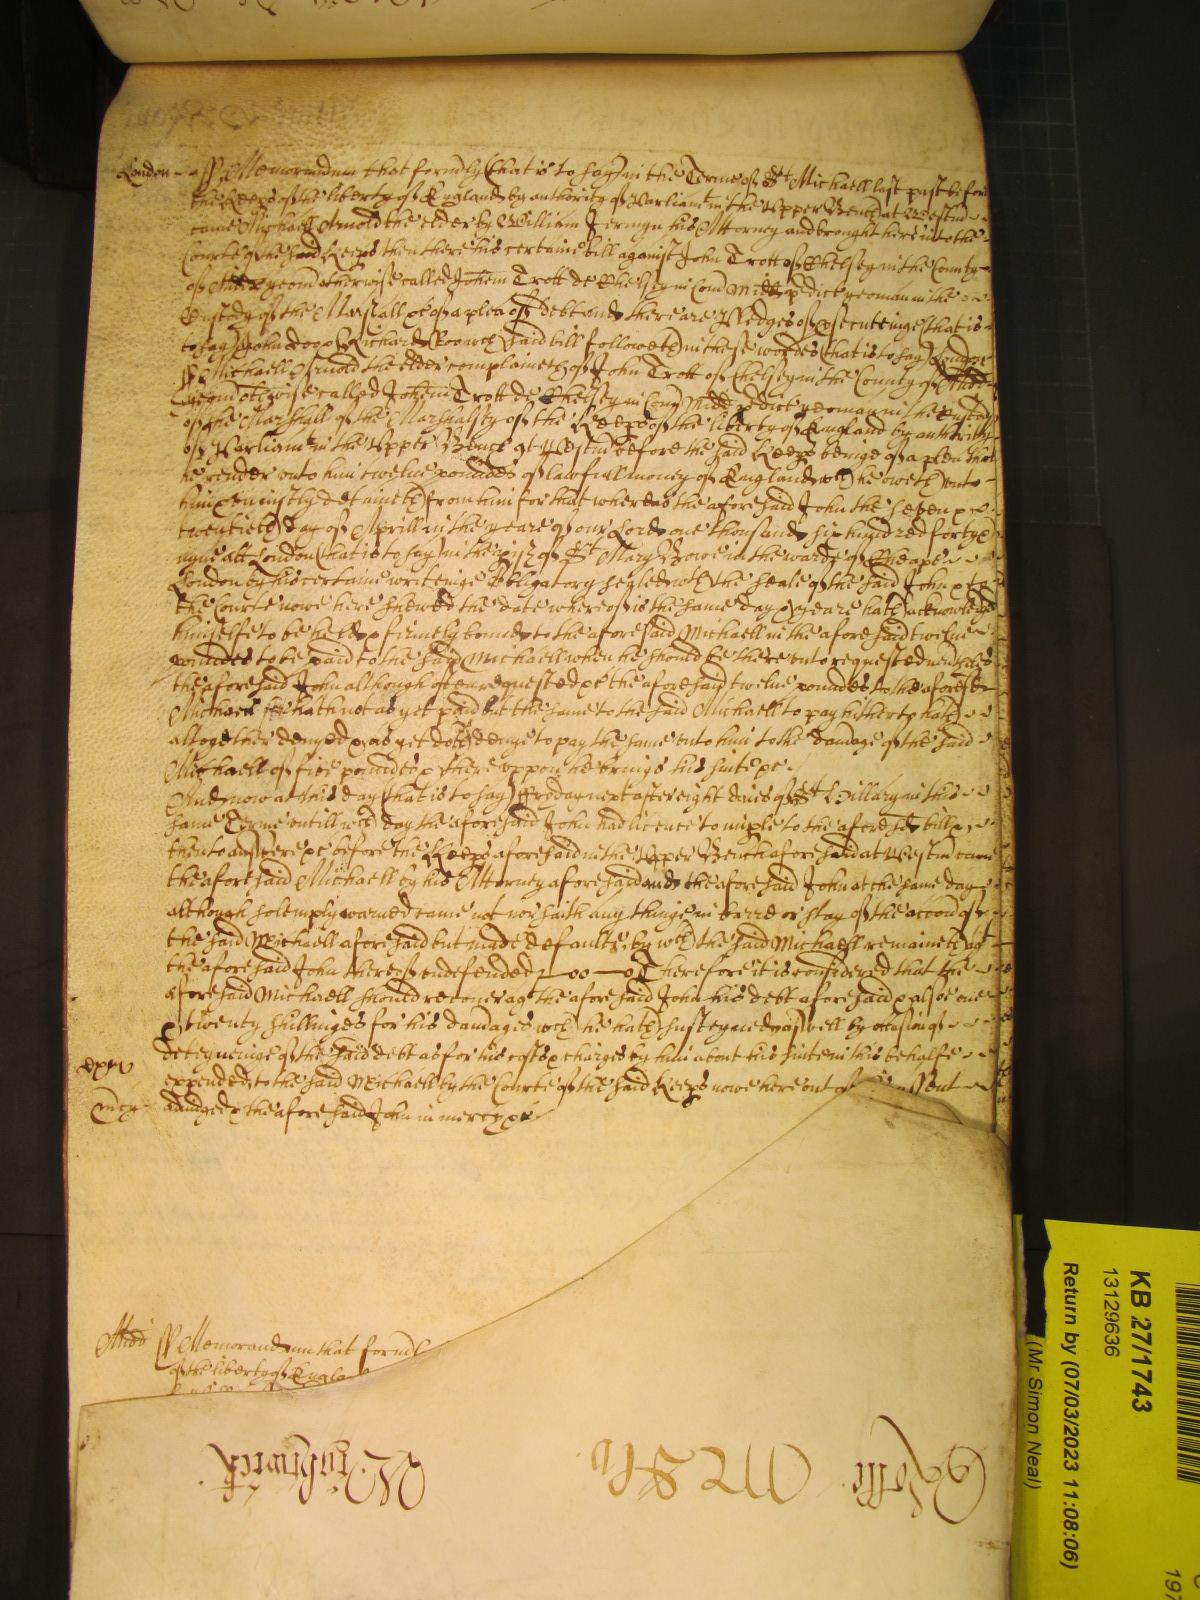 London ss Memorandum that formly (that is to say) in the Terme of St Michaell last past before
the Keeps of the liberty of England by authority of Parliamt in the Upper Bench at Westm
came Michaell Arnold the elder by William Jermyn his Attorney and brought here into the
Courte of the said Keeps then there his certaine bill against John Trott of Chelsey in the County
of Midd yeom otherwise called Johem Trott de Chelsey in Com Midd pdict yeoman in the
Custody of the Marshall &c of a plea of debt and there are Pledges of psecuteinge that is
to say John Doo & Richard Roo wch said bill followeth in these wordes (that is to say) London
ss Michaell Arnold the elder complaineth of John Trott of Chelsey in the County of Midd
yeom otherwise called Johem Trott de Chelsey in Com Midd pdict yeoman in the custody
of the Marshall of the Marshalsey of the Keeps of the liberty of England by authority
of Parliamt in the Upper Bench at Westm before the said Keeps beinge of a plea that
he render unto him twelve poundes of lawfull money of England wch he oweth unto
him & uniustly detaineth from him for that whereas the aforesaid John the seven &
twentieth day of Aprill in the yeare of our Lord one thousand six hundred forty &
nyne att London (that is to say) in the pish of St Mary Bowe in the warde of Cheape
London by his certaine writeinge obligatory sealed wth the seale of the said John & to
the Courte nowe here shewed the date whereof is the same day & yeare hath acknowledged
himselfe to be held & firmely bound to the aforesaid Michaell in the aforesaid twelve
poundes to be paid to the said Michaell when he should be thereunto requested neverthles
the aforesaid John although often requested &c the aforesaid twelve poundes to the aforesd
Michaell hath not as yet paid but the same to the said Michaell to pay hitherto hath
altogether denyed & as yet doth denye to pay the same unto him to the damage of the said
Michaell of five poundes & thereuppon he brings his suite &c
And now at this day (that is to say) Fryday next after eight daies of St Hillary in this
same Terme untill wch day the aforesaid John had licence to imple to the aforesaid bill &
then to answere &c before the Keeps aforesaid in the Upper Bench aforesaid at Westm came
the aforesaid Michaell by his Attorney aforesaid and the aforesaid John at the same day
although solemply warned came not nor saith any thinge in barre or stay of the accon of
the said Michaell aforesaid but made default by wch the said Michaell remaineth agt
the aforesaid John thereof undefended Therefore it is considered that the
aforesaid Michaell should recover agt the aforesaid John his debt aforesaid & alsoe one
& twenty shillinges for his damages wch he hath susteyned aswell by occasion of
deteyneinge of the said debt as for his costs & charges by him about his suite in this behalfe
expended to the said Michaell by the Courte of the said Keeps nowe here out of assent
adiudged & the aforesaid John in mercy &c
mcy
Midd ss Memorandum that forml
of the liberty of Engla
KB 27/1743
13129636
Return by (07/03/2023 11:08:06)
(Mr Simon Neal)